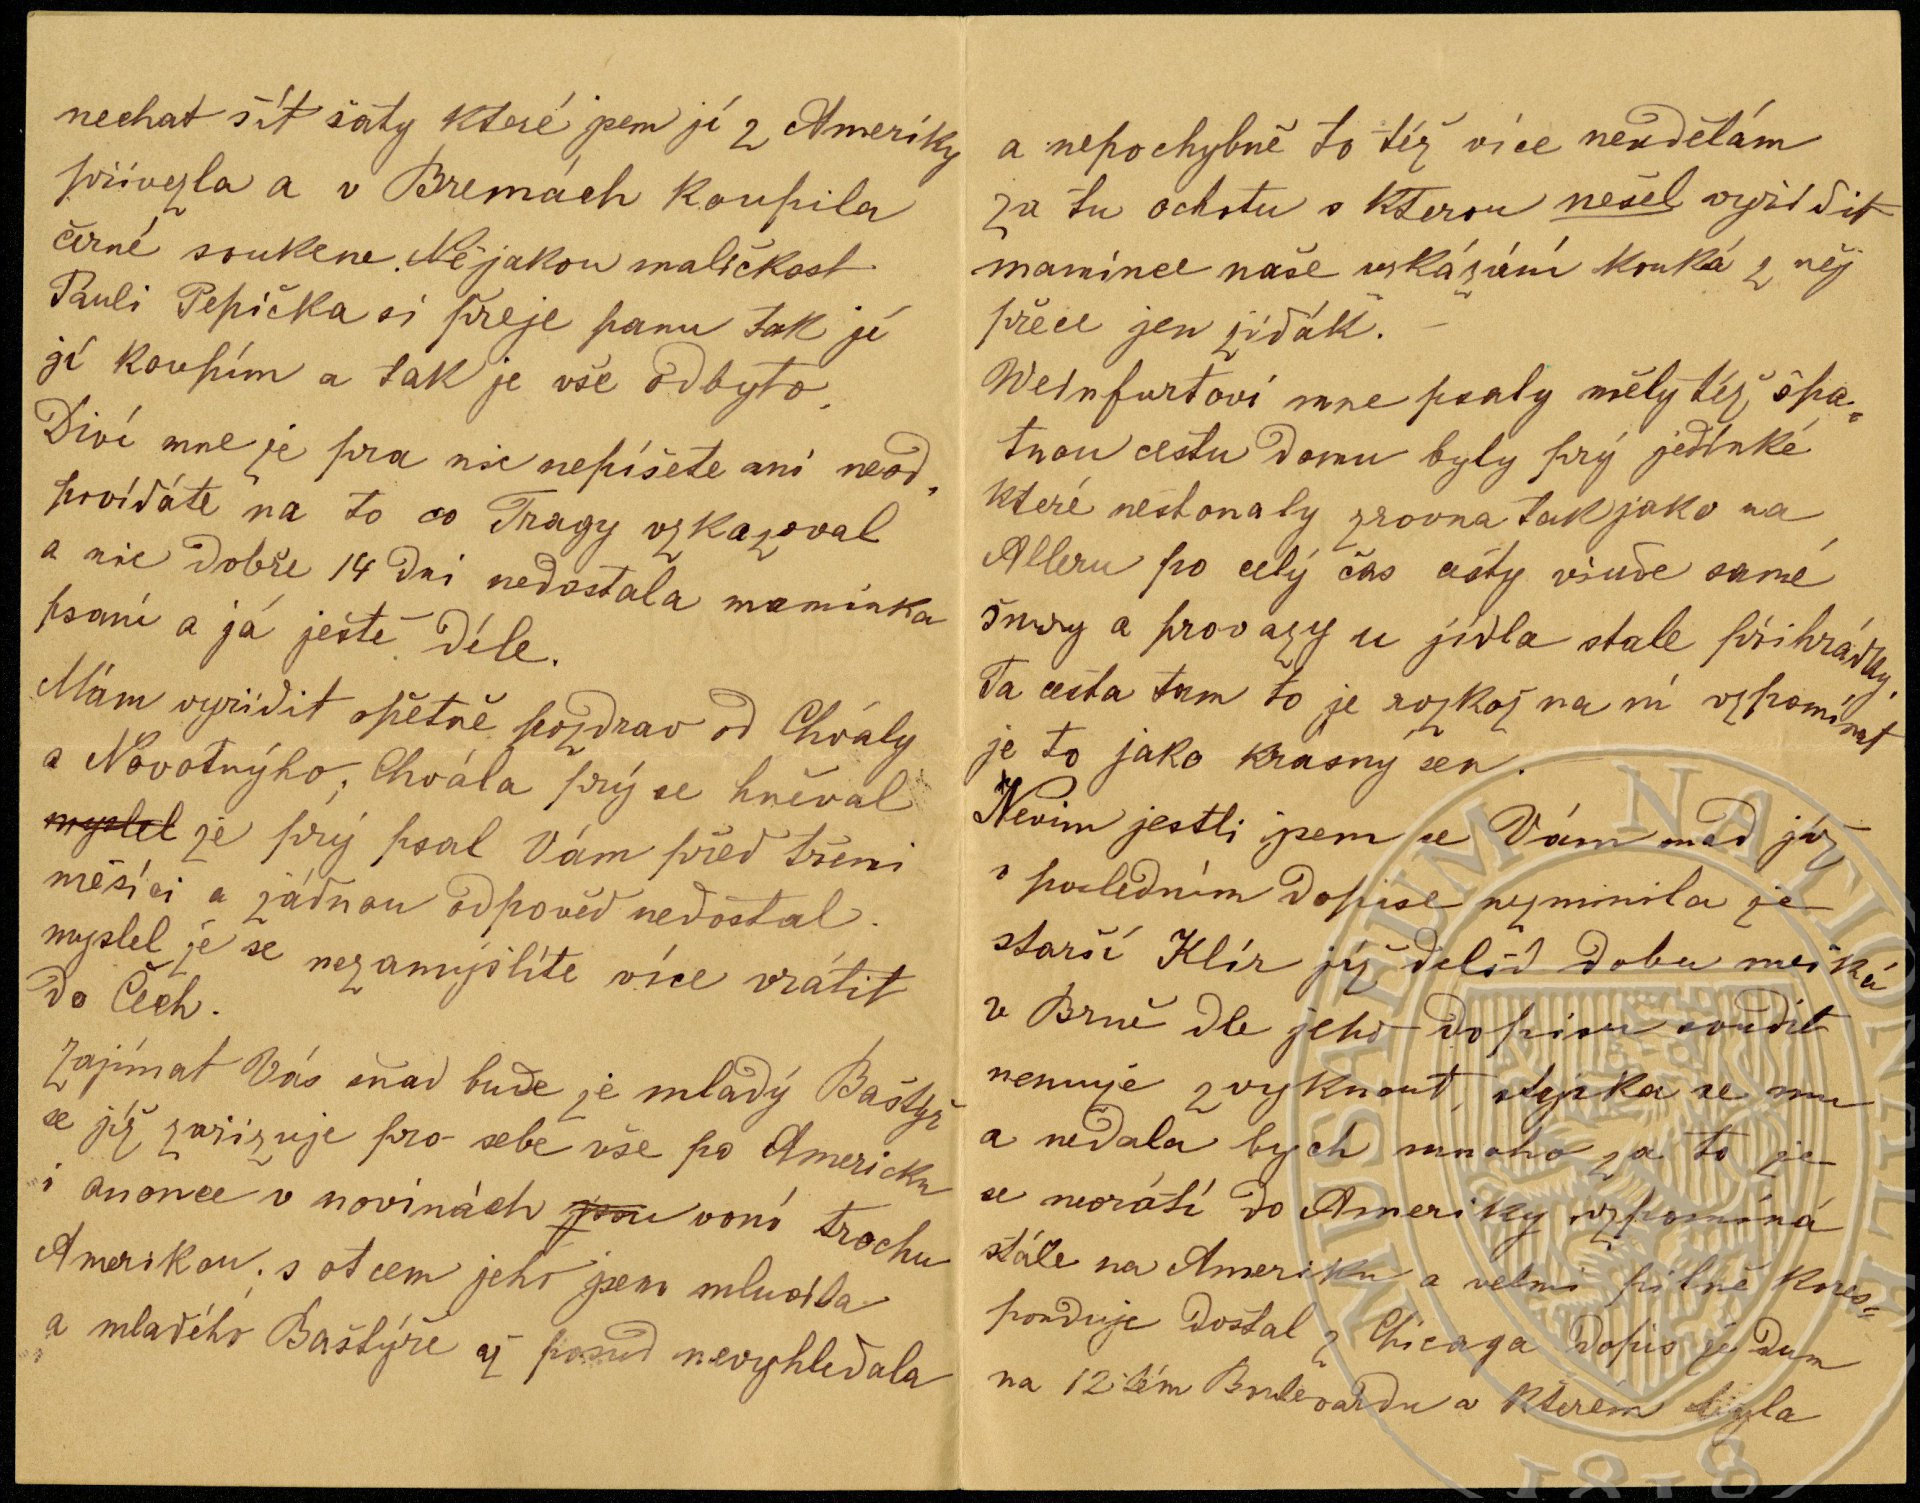 nechat šít šaty které jsem jí z Ameriky
přivezla a v Bremách koupila
černé soukene. Nějakou maličkost
Pauli Pepička si přeje panu tak jí
jí koupím a tak je vše odbyto.
Diví mne že pra nic nepíšete ani neod„
povídáte na to co Tragy vzkazoval
a nic dobře 14 dni nedostala maminka
psaní a já ještě déle.
Mám vyřídit opětně pozdrav od Chvály
a Novotnýho, Chvála prý se hněval
myslel že prý psal Vám před třemi
měsíci a žádnou odpověd nedostal.
myslel že se nezamýšlíte více vrátit
do Čech.
Zajímat Vás snad bude že mladý Baštýř
se již zařizuje pro sebe vše po Americku
i anonce v novinách jsou voní trochu
Amerikou, s otcem jeho jsem mluvila
a mladého Baštýře až posud nevyhledala
a nepochybně to též více neudělám
za tu ochotu s kterou nešel vyřídit
mamince naše vzkázání kouká z něj
přece jen židák. –
Weinfurtovi mne psaly měly též špa„
tnou cestu domu byly prý jedinké
které nestonaly zrovna tak jako na
Alleru po celý čas cesty všude samé
šnury a provazy u jídla stale přihrádky.
Ta cesta tam to je rozkoš na ní vzpomínat
je to jako krásný sen.
Nevím jestli jsem se Vám snad již
v posledním dopise nezminila že
starší Klír již delší dobu meškà
v Brně dle jeho dopisu soudit
nemuže zvyknout, stýska se mu
a nedala bych mnoho za to že
se nevrátí do Ameriky vzpomíná
stále na Ameriku a velmi pilně kores=
ponduje dostal z Chicaga dopis že dum
na 12-tém Boulevardu v kterem byla
MUSAEUM NATIONALE
1818